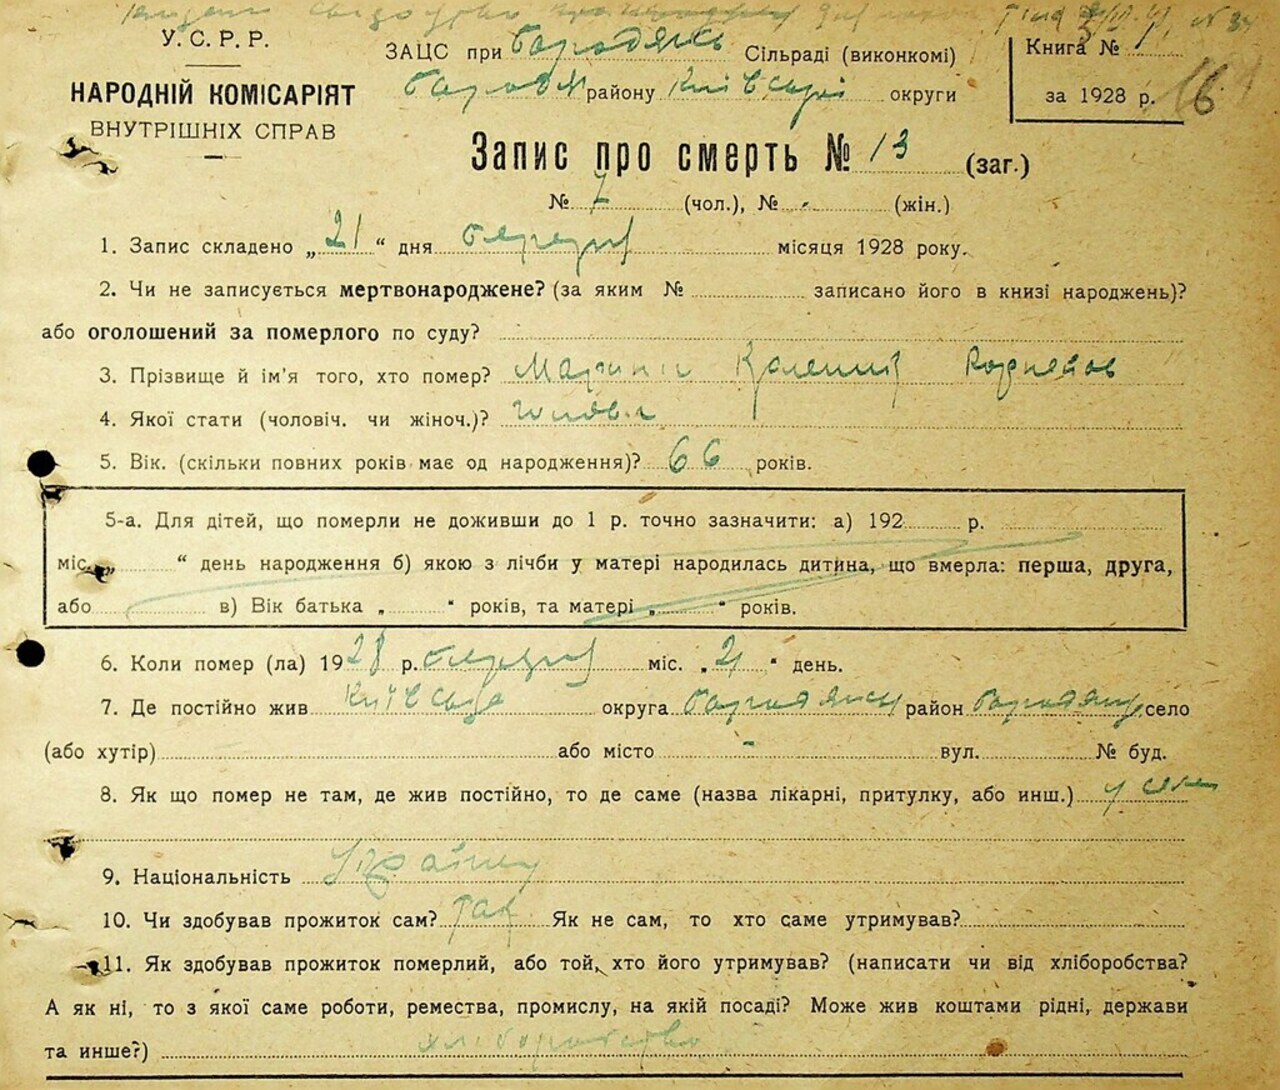 У.С.Р.Р.
НАРОДНІЙ КОМІСАРІЯТ
ВНУТРІШНІХ СПРАВ
ЗАЦС при Сільраді (виконкомі)
району Київської округи
Книга №
за 1928 р.
Запис про смерть № 13 (заг.)
№ 7 (чол.), № - (жін.)
1. Запис складено „21“ дня березня місяця 1928 року.
2. Чи не записується мертвонароджене? (за яким № записано його в книзі народжень)?
або оголошений за померлого по суду?
3. Прізвище й ім'я того, хто помер?
4. Якої стати (чоловіч. чи жіноч.)?
5. Вік. (скільки повних років має од народження)? 66 років.
5-а. Для дітей, що померли не доживши до 1 р. точно зазначити: а) 192 р.
міс. „ “ день народження б) якою з лічби у матері народилась дитина, що вмерла: перша, друга,
або в) Вік батька „ “ років, та матері „ “ років.
6. Коли помер (ла) 1928 р. березня міс. „21“ день.
7. Де постійно жив округа район село
(або хутір) або місто - вул. № буд.
8. Як що помер не там, де жив постійно, то де саме (назва лікарні, притулку, або инш.)
9. Національність
10. Чи здобував прожиток сам? Так Як не сам, то хто саме утримував?
11. Як здобував прожиток померлий, або той, хто його утримував? (написати чи від хліборобства?
А як ні, то з якої саме роботи, ремества, промислу, на якій посаді? Може жив коштами рідні, держави
та инше?) хліборобство